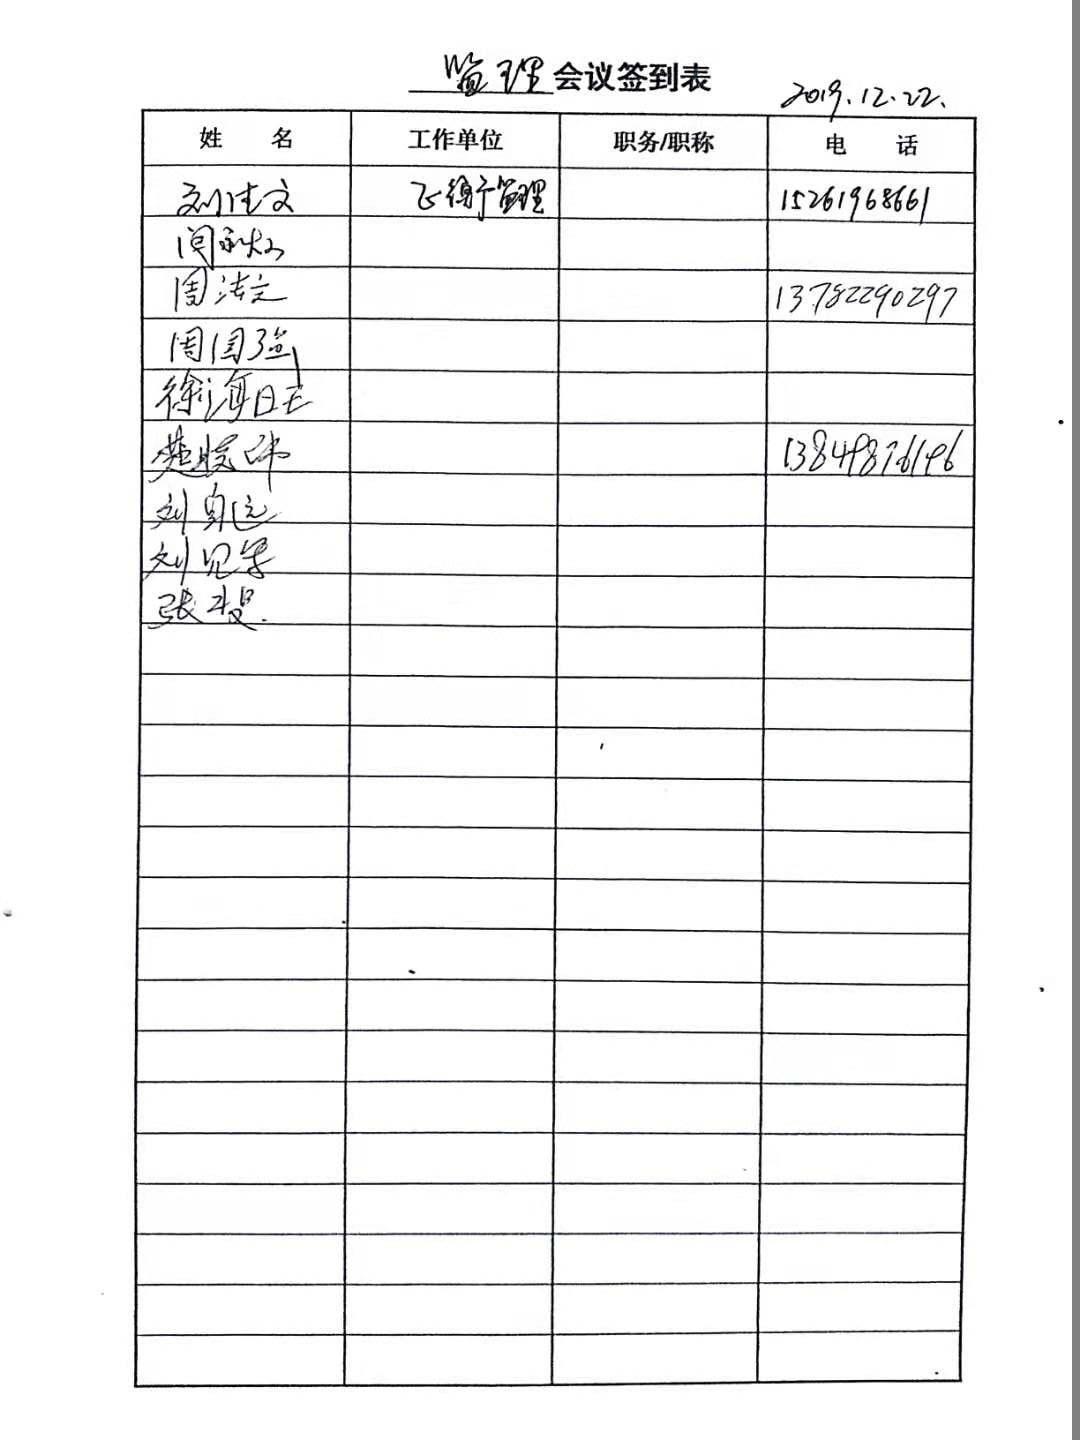 监理会议签到表
2019.12.22.
姓 名 工作单位 职务/职称 电 话
刘佳文 管理 15261968661
闫
周法文 13782290297
周国强
徐海日
13849876196
刘自远
刘见军
张